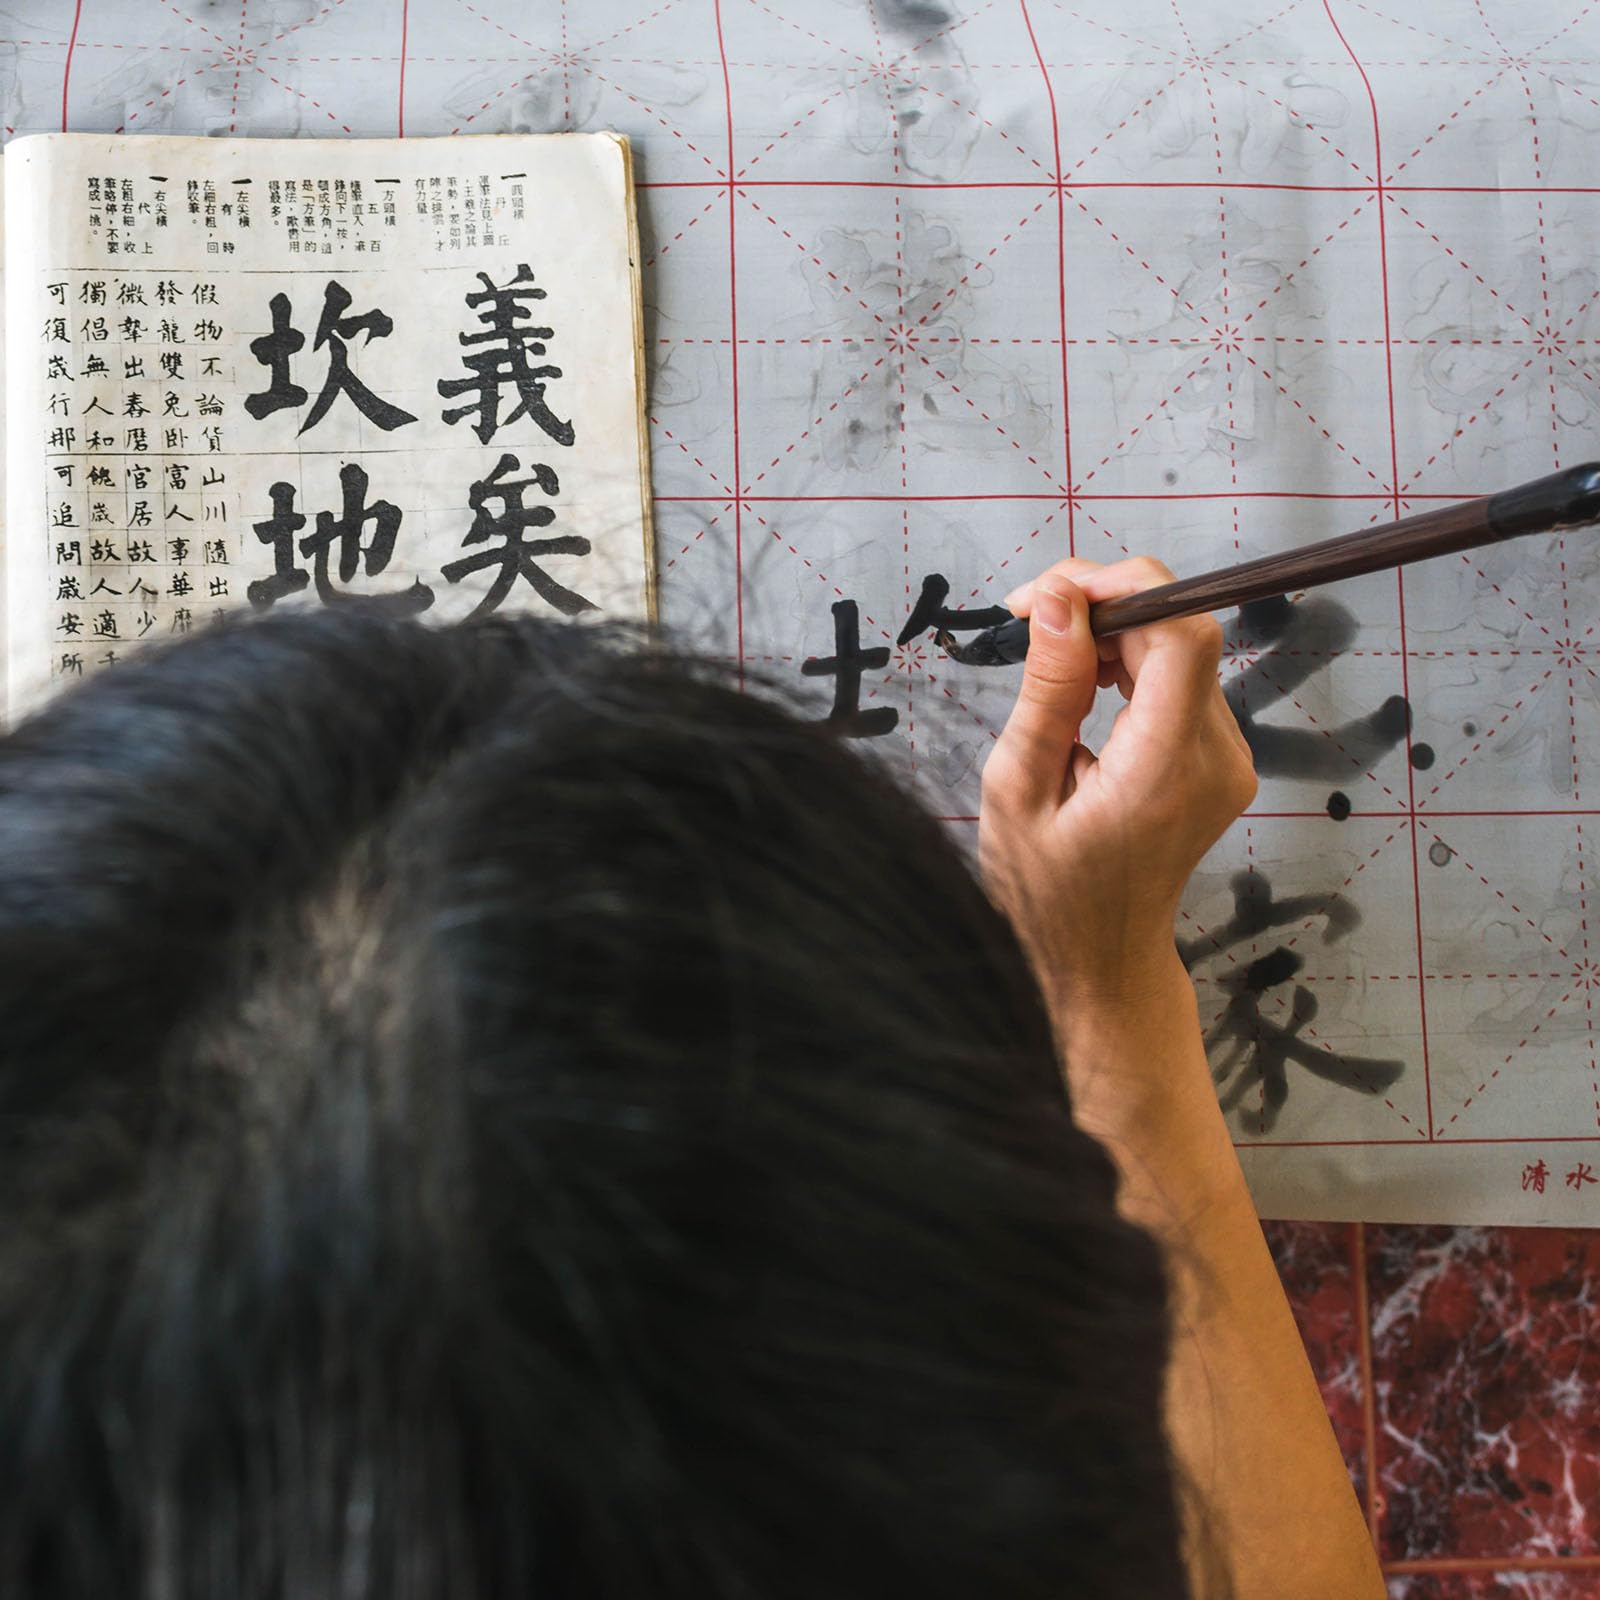 一圓頭橫
丹丘
運筆法見上圖
，王羲之論其
筆勢，要如列
陣之排雲，才
有力量。
一方頭橫
五百
橫筆直入，筆
鋒向下一按，
頓成方角，這
是「方筆」的
寫法，歐書用
得最多。
一左尖橫
有時
左細右粗，回
鋒收筆。
一右尖橫
代上
左粗右細，收
筆略停，不要
寫成一挑。
義矣
坎地
假物不論貨山川隨出
發龍雙兔卧富人事華靡
微摯出舂磨官居故人少
獨倡無人和餽歲故人適千
可復歲行那可追問歲安所
之家
清水